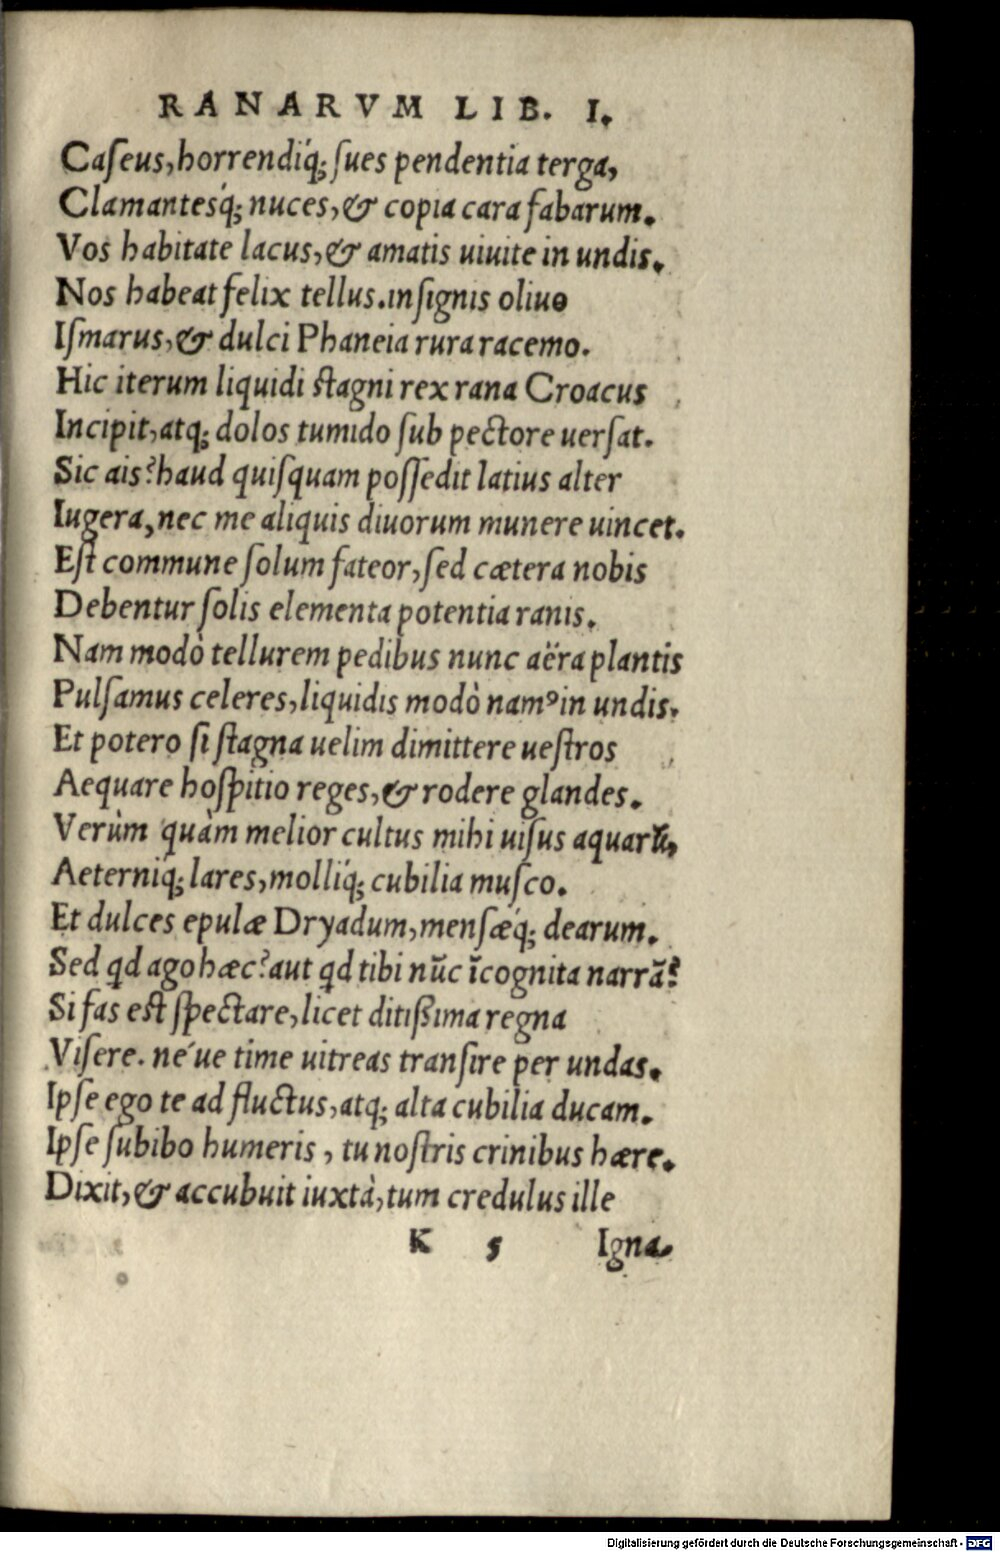 RANARVM LIB. I.
Caſeus, horrendiq́; ſues pendentia terga,
Clamantesq́; nuces, & copia cara fabarum.
Vos habitate lacus, & amatis uiuite in undis.
Nos habeat felix tellus. inſignis oliuo
Iſmarus, & dulci Phaneia rura racemo.
Hic iterum liquidi ſtagni rex rana Croacus
Incipit, atq; dolos tumido ſub pectore uerſat.
Sic ais? haud quiſquam poſſedit latius alter
Iugera, nec me aliquis diuorum munere uincet.
Eſt commune ſolum fateor, ſed cætera nobis
Debentur ſolis elementa potentia ranis.
Nam modò tellurem pedibus nunc aëra plantis
Pulſamus celeres, liquidis modò namꝰ in undis.
Et potero ſi ſtagna uelim dimittere ueſtros
Aequare hoſpitio reges, & rodere glandes.
Verùm quàm melior cultus mihi uiſus aquarũ,
Aeterniq́; lares, molliq́; cubilia muſco.
Et dulces epulæ Dryadum, menſæq́; dearum.
Sed qd ago hæc? aut qd tibi nũc ĩcognita narrã?
Si fas eſt ſpectare, licet ditißima regna
Viſere. né ue time uitreas tranſire per undas.
Ipſe ego te ad fluctus, atq; alta cubilia ducam.
Ipſe ſubibo humeris, tu noſtris crinibus hære.
Dixit, & accubuit iuxtà, tum credulus ille
K 5 Igna-
Digitalisierung gefördert durch die Deutsche Forschungsgemeinschaft - DFG